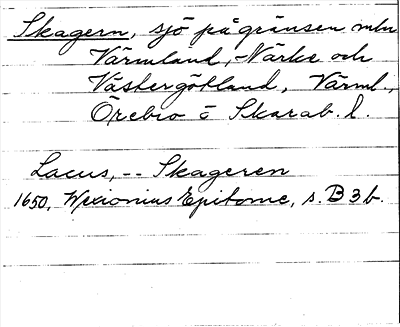 Skagern, sjö på gränsen mln
Värmland, Närke och
Västergötland, Värml.,
Örebro o Skarab. l.
Lacus, -- Skageren
1650, Wexionius Epitome, s. B 3 b.